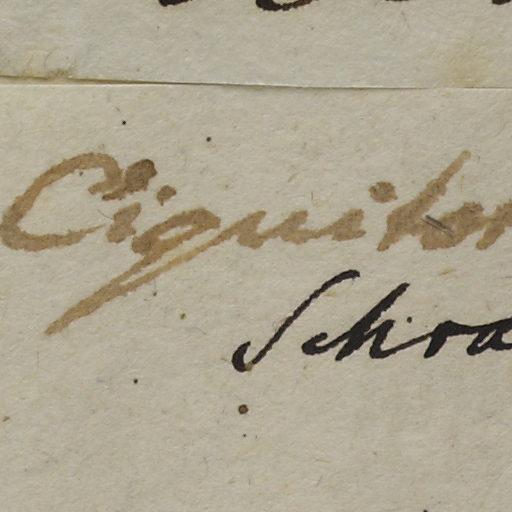 Ciquitor
Schra